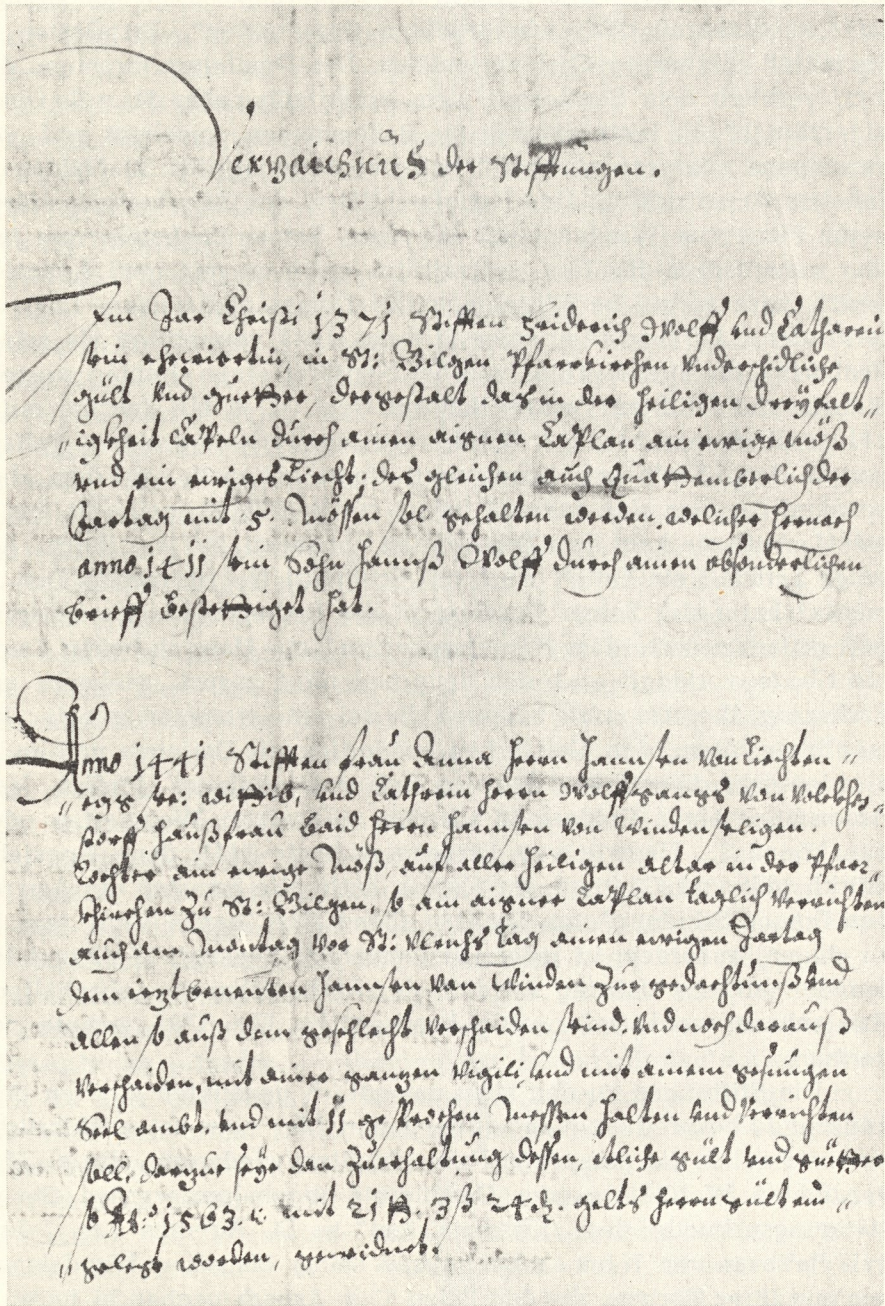 Verzaichnus der Stifftungen.
Im Jar Christi 1371 Stifften Friderich Wolff vnd Catharein
sein ehewiertin, in St: Gilgen Pfarrkirchen vnderschidliche
gült vnd guetter, dergestalt das in der heiligen Dreyfalt„
„igkheit Capeln durch ainen aignen Caplan ain ewige möß
vnd ein ewiges Liecht: des gleichen auch Quattemberlich der
Jartag mit 5. Mössen sol gehalten werden, welicher hernach
anno 1411 sein Sohn Hannß Wolff durch ainen absonderlichen
brieff bestettiget hat.
Anno 1441 Stifften Frau Anna Herrn Hannsen von Liechten„
„egg se: wittib, vnd Cathrein Herrn Wolffgangs von Volckhes„
storff Haußfrau baid Herrn Hannsen von Winden seligen.
Töchter ain ewige Möß, auf aller Heiligen altar in der Pfarr„
khirchen zu St: Gilgen, so ain aigner Caplan täglich verrichten
auch am Montag vor St: Vlrichs Tag ainen ewigen Jartag
dem ieztbenenten Hannsen von Winden zur gedechtnuß vnd
allen so auß dem geschlecht verschaiden seind, vnd noch darauß
verschaiden, mit ainer ganzen Vigili, vnd mit ainem gesungen
Seel ambt, vnd mit 11 gesprochen Messen halten vnd verrichten
soll, darzue seye dan zuerhaltung dessen, etliche gült vnd guetter
so Ao: 1563. mit 21 ₰. 3 ß 24 ₰. gelts Herrngült ein„
„gelegt worden, gewidmet.